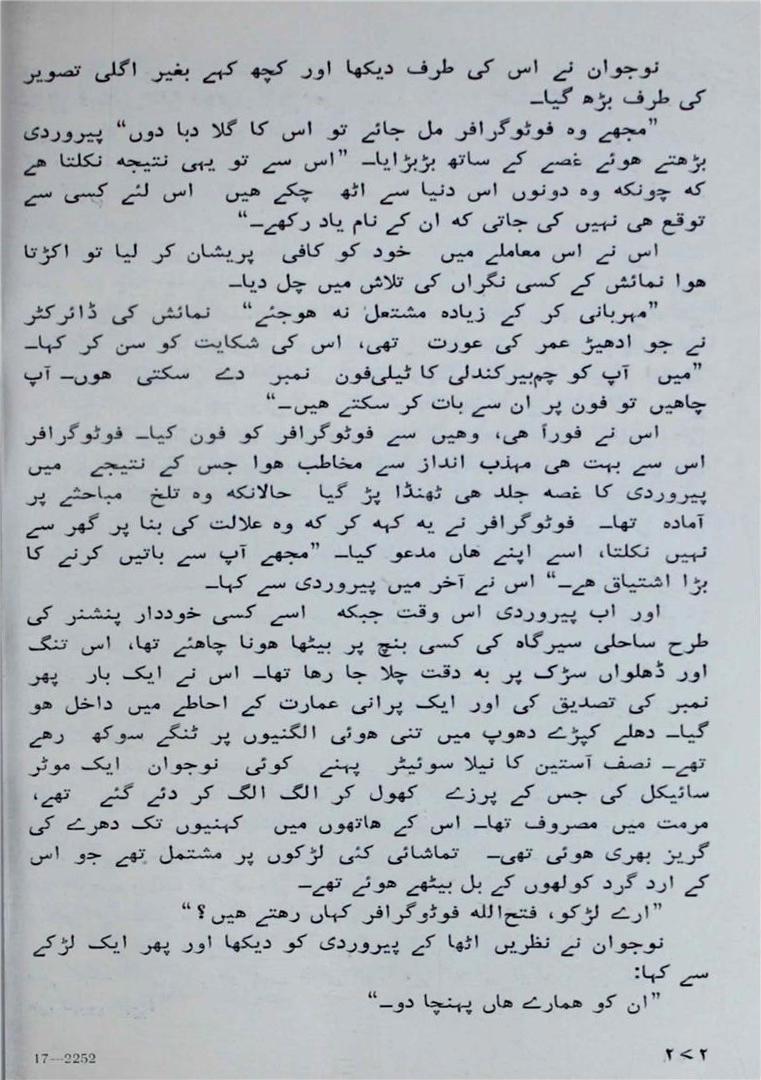 نوجوان نے اس کی طرف دیکھا اور کچھ کہے بغیر اگلی تصویر
کی طرف بڑھ گیا۔
”مجھے وہ فوٹوگرافر مل جائے تو اس کا گلا دبا دوں“ پیروردی
بڑھتے ہوئے غصے کے ساتھ بڑبڑایا۔ ”اس سے تو یہی نتیجہ نکلتا ہے
کہ چونکہ وہ دونوں اس دنیا سے اٹھ چکے ہیں اس لئے کسی سے
توقع ہی نہیں کی جاتی کہ ان کے نام یاد رکھے۔“
اس نے اس معاملے میں خود کو کافی پریشان کر لیا تو اکڑتا
ہوا نمائش کے کسی نگراں کی تلاش میں چل دیا۔
”مہربانی کر کے زیادہ مشتعل نہ ہوجئے“ نمائش کی ڈائرکٹر
نے جو ادھیڑ عمر کی عورت تھی، اس کی شکایت کو سن کر کہا۔
”میں آپ کو چم‌بیرکندلی کا ٹیلی‌فون نمبر دے سکتی ہوں۔ آپ
چاہیں تو فون پر ان سے بات کر سکتے ہیں۔“
اس نے فوراً ہی، وہیں سے فوٹوگرافر کو فون کیا۔ فوٹوگرافر
اس سے بہت ہی مہذب انداز سے مخاطب ہوا جس کے نتیجے میں
پیروردی کا غصہ جلد ہی ٹھنڈا پڑ گیا حالانکہ وہ تلخ مباحثے پر
آمادہ تھا۔ فوٹوگرافر نے یہ کہہ کر کہ وہ علالت کی بنا پر گھر سے
نہیں نکلتا، اسے اپنے ہاں مدعو کیا۔ ”مجھے آپ سے باتیں کرنے کا
بڑا اشتیاق ہے۔“ اس نے آخر میں پیروردی سے کہا۔
اور اب پیروردی اس وقت جبکہ اسے کسی خوددار پنشنر کی
طرح ساحلی سیرگاہ کی کسی بنچ پر بیٹھا ہونا چاہئے تھا، اس تنگ
اور ڈھلواں سڑک پر بہ دقت چلا جا رہا تھا۔ اس نے ایک بار پھر
نمبر کی تصدیق کی اور ایک پرانی عمارت کے احاطے میں داخل ہو
گیا۔ دھلے کپڑے دھوپ میں تنی ہوئی الگنیوں پر ٹنگے سوکھ رہے
تھے۔ نصف آستین کا نیلا سوئیٹر پہنے کوئی نوجوان ایک موٹر
سائیکل کی جس کے پرزے کھول کر الگ الگ کر دئے گئے تھے،
مرمت میں مصروف تھا۔ اس کے ہاتھوں میں کہنیوں تک دھرے کی
گریز بھری ہوئی تھی۔ تماشائی کئی لڑکوں پر مشتمل تھے جو اس
کے ارد گرد کولھوں کے بل بیٹھے ہوئے تھے۔
”ارے لڑکو، فتح‌اللہ فوٹوگرافر کہاں رہتے ہیں؟“
نوجوان نے نظریں اٹھا کے پیروردی کو دیکھا اور پھر ایک لڑکے
سے کہا:
”ان کو ہمارے ہاں پہنچا دو۔“
17—2252
۲۷۲